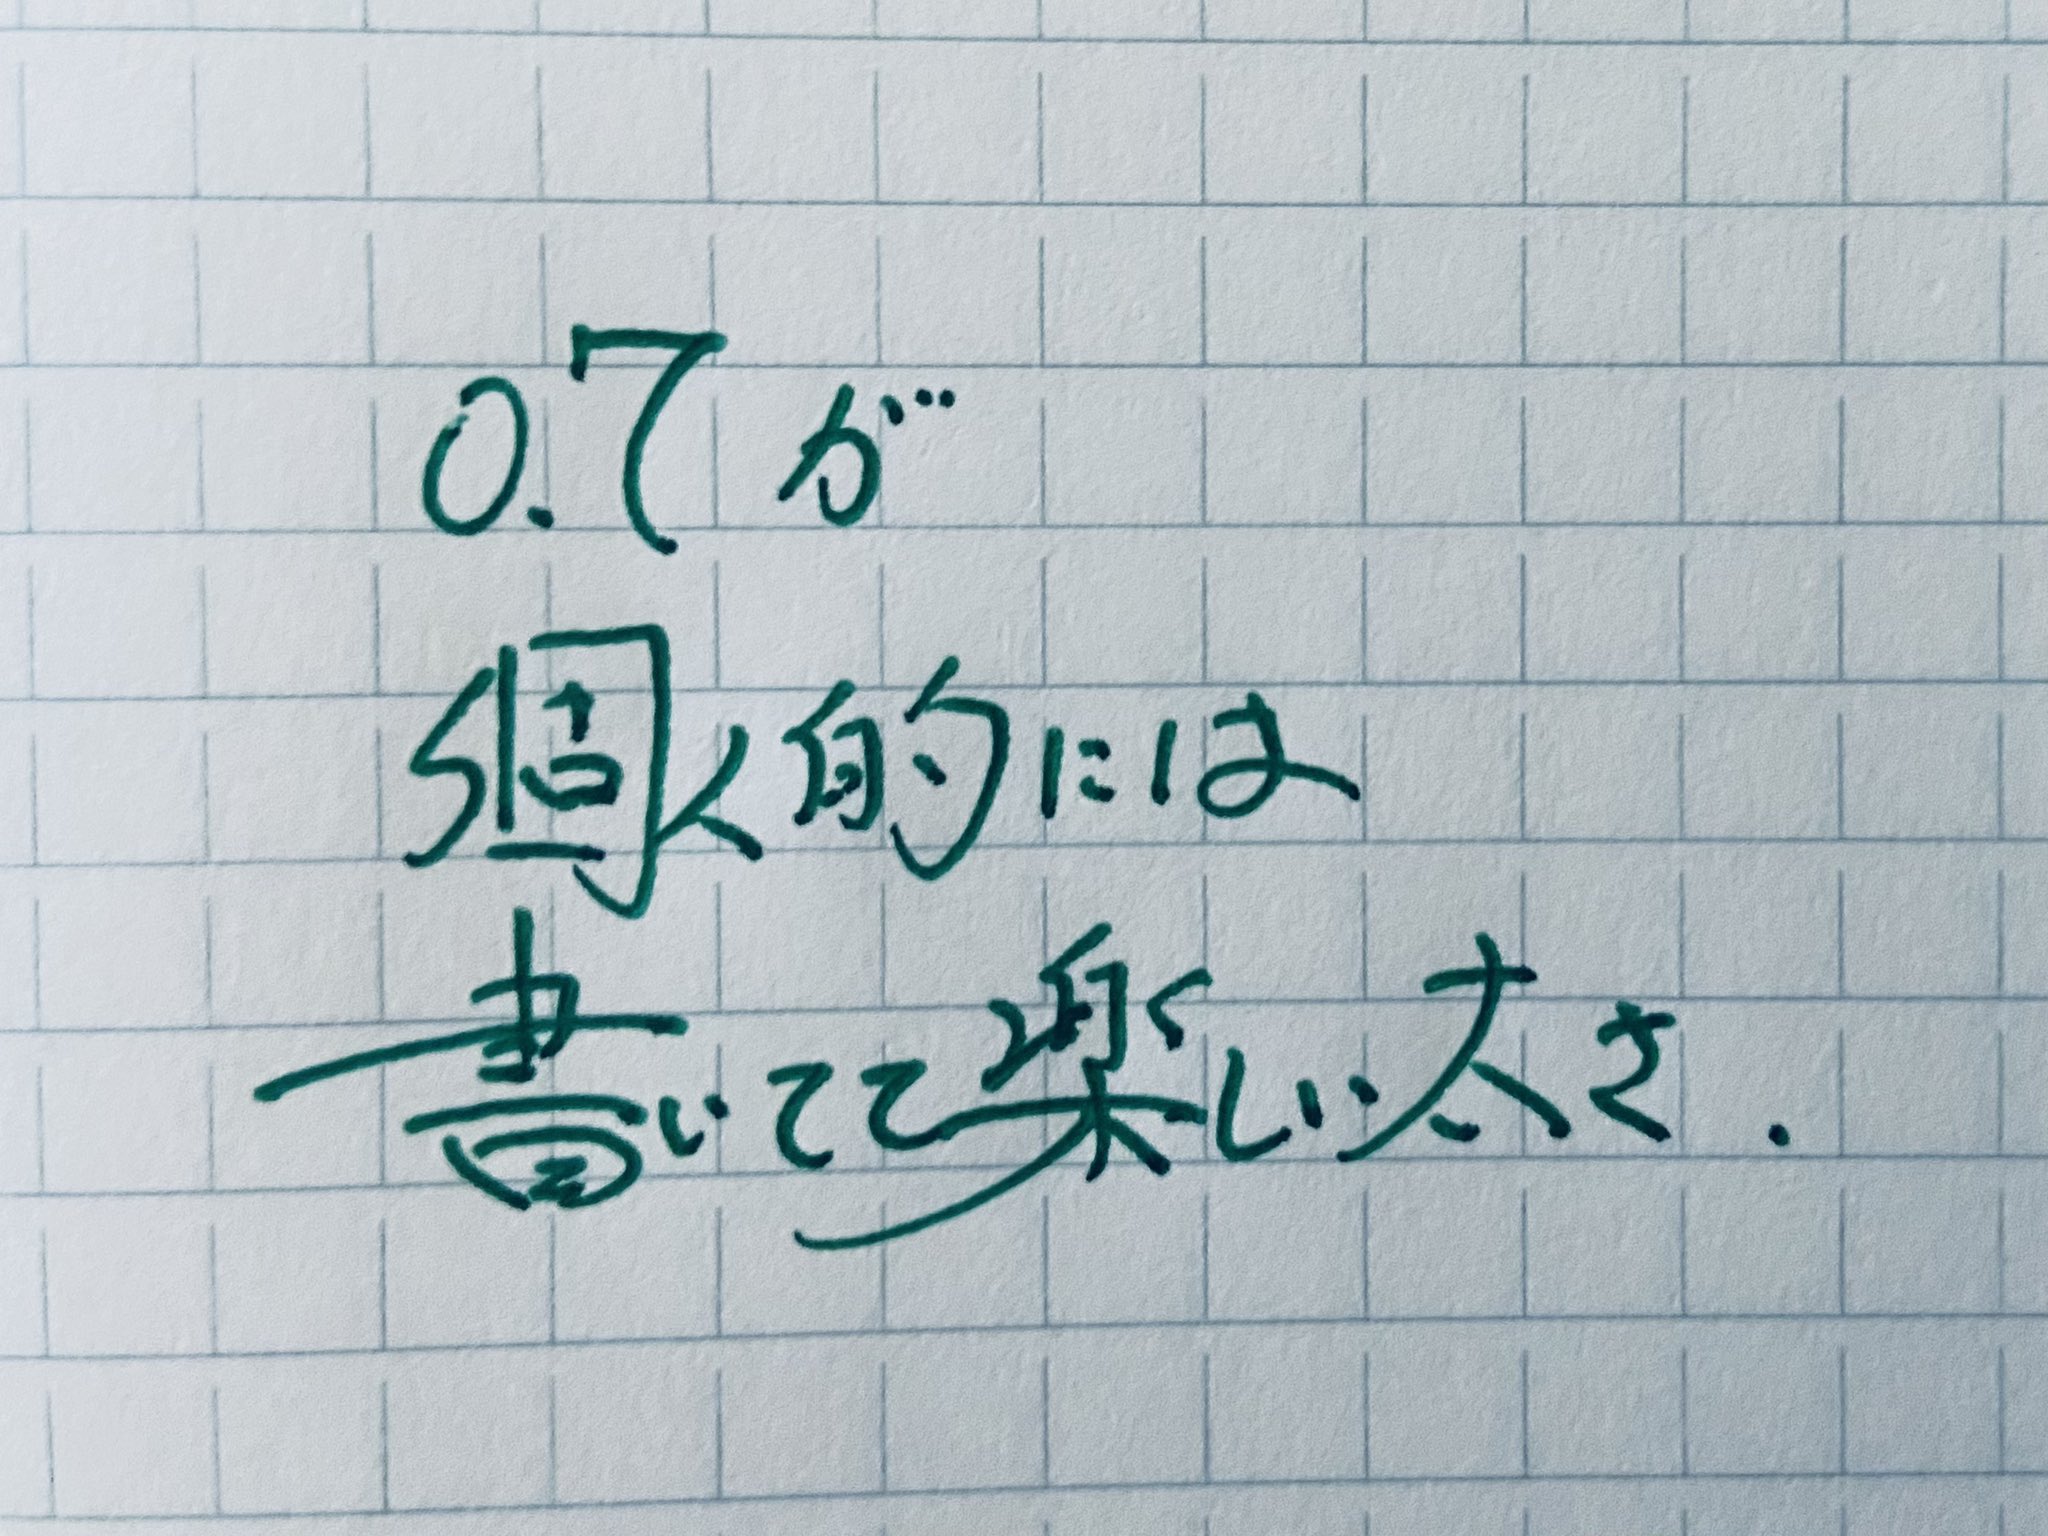 0.7が
個人的には
書いてて楽しい太さ.